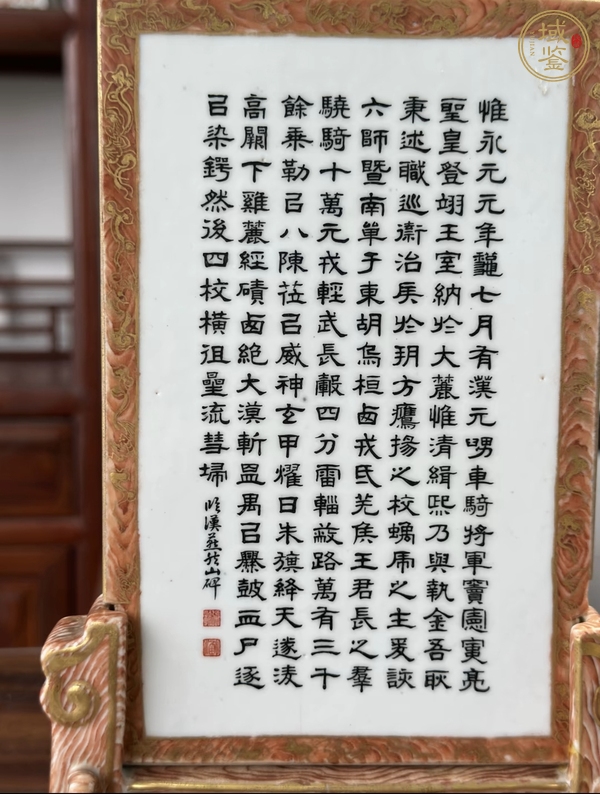 惟永元元年龝七月有漢元舅車騎將軍竇憲寅亮
聖皇登翊王室納於大麓惟清緝熙乃與執金吾耿
秉述職巡衛治兵於朔方鷹揚之校螭虎之士爰該
六師暨南單于東胡烏桓西戎氐羌侯王君長之羣
驍騎十萬元戎輕武長轂四分雷輜蔽路萬有三千
餘乘勒㠯八陳莅㠯威神玄甲燿日朱旗絳天遂淩
高闕下雞麓經磧鹵絕大漠斬昷禺㠯釁鼓血尸逐
㠯染鍔然後四校橫徂星流彗埽
臨漢燕然山碑
域鑒